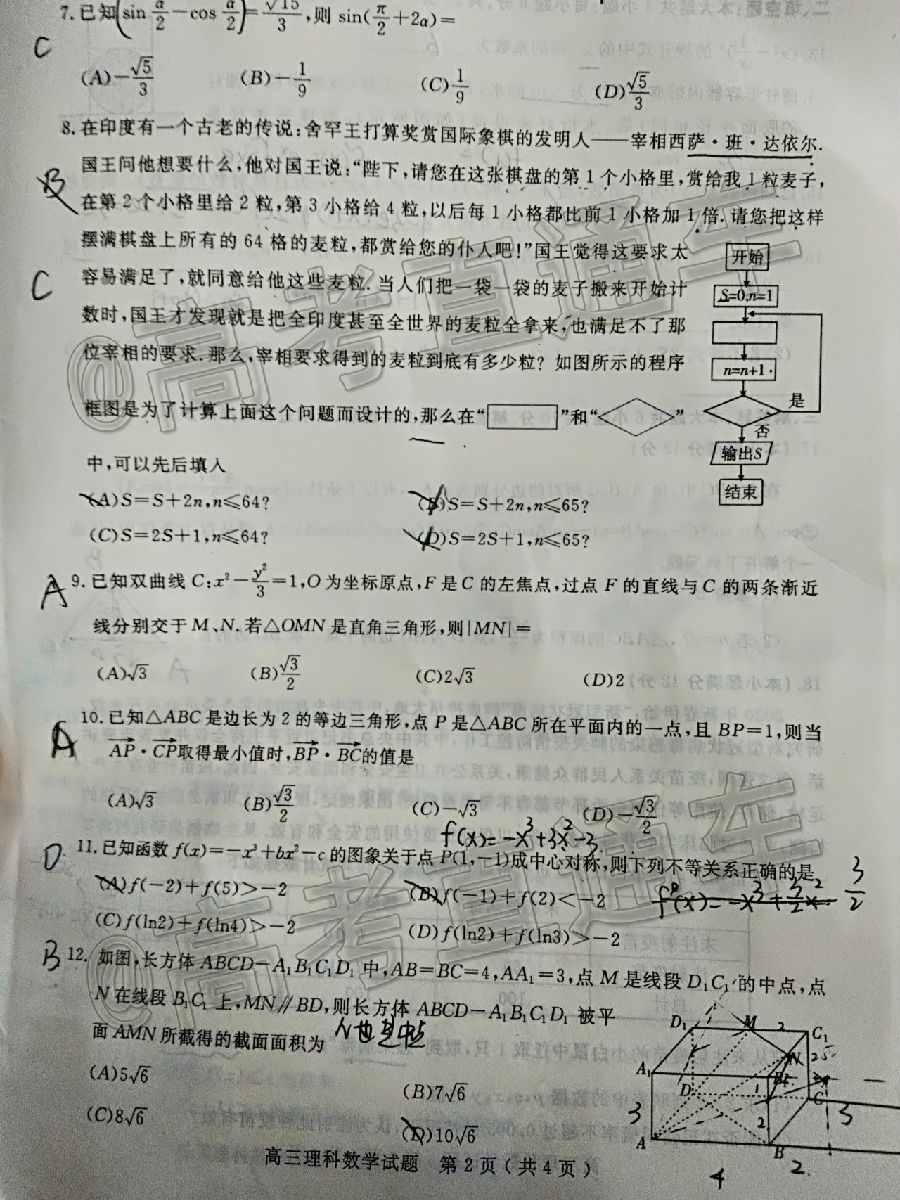 7.已知(sin α/2−cos α/2)=√15/3,则 sin(π/2+2α)=
C
(A)−√5/3 (B)−1/9 (C)1/9 (D)√5/3
8.在印度有一个古老的传说:舍罕王打算奖赏国际象棋的发明人——宰相西萨·班·达依尔.
国王问他想要什么,他对国王说:“陛下,请您在这张棋盘的第1个小格里,赏给我1粒麦子,
B
在第2个小格里给2粒,第3小格给4粒,以后每1小格都比前1小格加1倍.请您把这样
摆满棋盘上所有的64格的麦粒,都赏给您的仆人吧!”国王觉得这要求太
C
容易满足了,就同意给他这些麦粒.当人们把一袋一袋的麦子搬来开始计
数时,国王才发现就是把全印度甚至全世界的麦粒全拿来,也满足不了那
位宰相的要求.那么,宰相要求得到的麦粒到底有多少粒?如图所示的程序
框图是为了计算上面这个问题而设计的,那么在“ ”和“ ”
中,可以先后填入
开始
S=0,n=1
n=n+1
是
否
输出S
结束
(A)S=S+2n,n≤64? (B)S=S+2n,n≤65?
(C)S=2S+1,n≤64? (D)S=2S+1,n≤65?
A
9.已知双曲线C:x²−y²/3=1,O为坐标原点,F是C的左焦点,过点F的直线与C的两条渐近
线分别交于M、N.若△OMN是直角三角形,则|MN|=
(A)√3 (B)√3/2 (C)2√3 (D)2
A
10.已知△ABC是边长为2的等边三角形,点P是△ABC所在平面内的一点,且BP=1,则当
AP·CP取得最小值时,BP·BC的值是
(A)√3 (B)√3/2 (C)−√3 (D)−√3/2
f(x)=−x³+3x²−3
D
11.已知函数f(x)=−x³+bx²−c的图象关于点P(1,−1)成中心对称,则下列不等关系正确的是
(A)f(−2)+f(5)>−2 (B)f(−1)+f(2)<−2
(C)f(ln2)+f(ln4)>−2 (D)f(ln2)+f(ln3)>−2
3/2
B
12.如图,长方体ABCD−A₁B₁C₁D₁中,AB=BC=4,AA₁=3,点M是线段D₁C₁的中点,点
N在线段B₁C₁上,MN∥BD,则长方体ABCD−A₁B₁C₁D₁被平
面AMN所截得的截面面积为
N也是中点
(A)5√6 (B)7√6
(C)8√6 (D)10√6
D₁ M 2 C₁
A₁ N 2
D C
3 3
2
A B
4 2
高三理科数学试题 第2页(共4页)
@高考直通车
@高考直通车